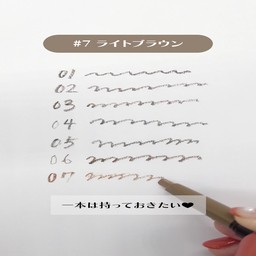 #7 ライトブラウン
01
02
03
04
05
06
07
一本は持っておきたい❤